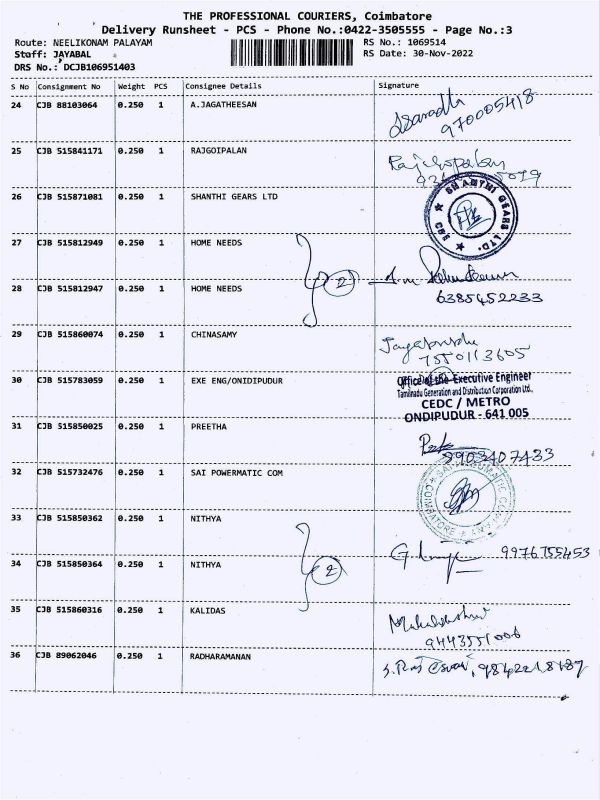 THE PROFESSIONAL COURIERS, Coimbatore
Delivery Runsheet - PCS - Phone No.:0422-3505555 - Page No.:3
Route: NEELIKONAM PALAYAM
RS No.: 1069514
Staff: JAYABAL
RS Date: 30-Nov-2022
DRS No.: DCJB106951403
S No Consignment No Weight PCS Consignee Details Signature
24 CJB 88103064 0.250 1 A.JAGATHEESAN
970005418
25 CJB 515841171 0.250 1 RAJGOIPALAN Rajgopalan
26 CJB 515871081 0.250 1 SHANTHI GEARS LTD
SHANTHI GEARS LTD. CBE
27 CJB 515812949 0.250 1 HOME NEEDS
2
28 CJB 515812947 0.250 1 HOME NEEDS
6385452233
29 CJB 515860074 0.250 1 CHINASAMY
7550113605
30 CJB 515783059 0.250 1 EXE ENG/ONIDIPUDUR
Office of the Executive Engineer
Tamilnadu Generation and Distribution Corporation Ltd.,
CEDC / METRO
ONDIPUDUR - 641 005
31 CJB 515850025 0.250 1 PREETHA
8903407433
32 CJB 515732476 0.250 1 SAI POWERMATIC COM
33 CJB 515850362 0.250 1 NITHYA
2
34 CJB 515850364 0.250 1 NITHYA
9976755453
35 CJB 515860316 0.250 1 KALIDAS
9443551006
36 CJB 89062046 0.250 1 RADHARAMANAN